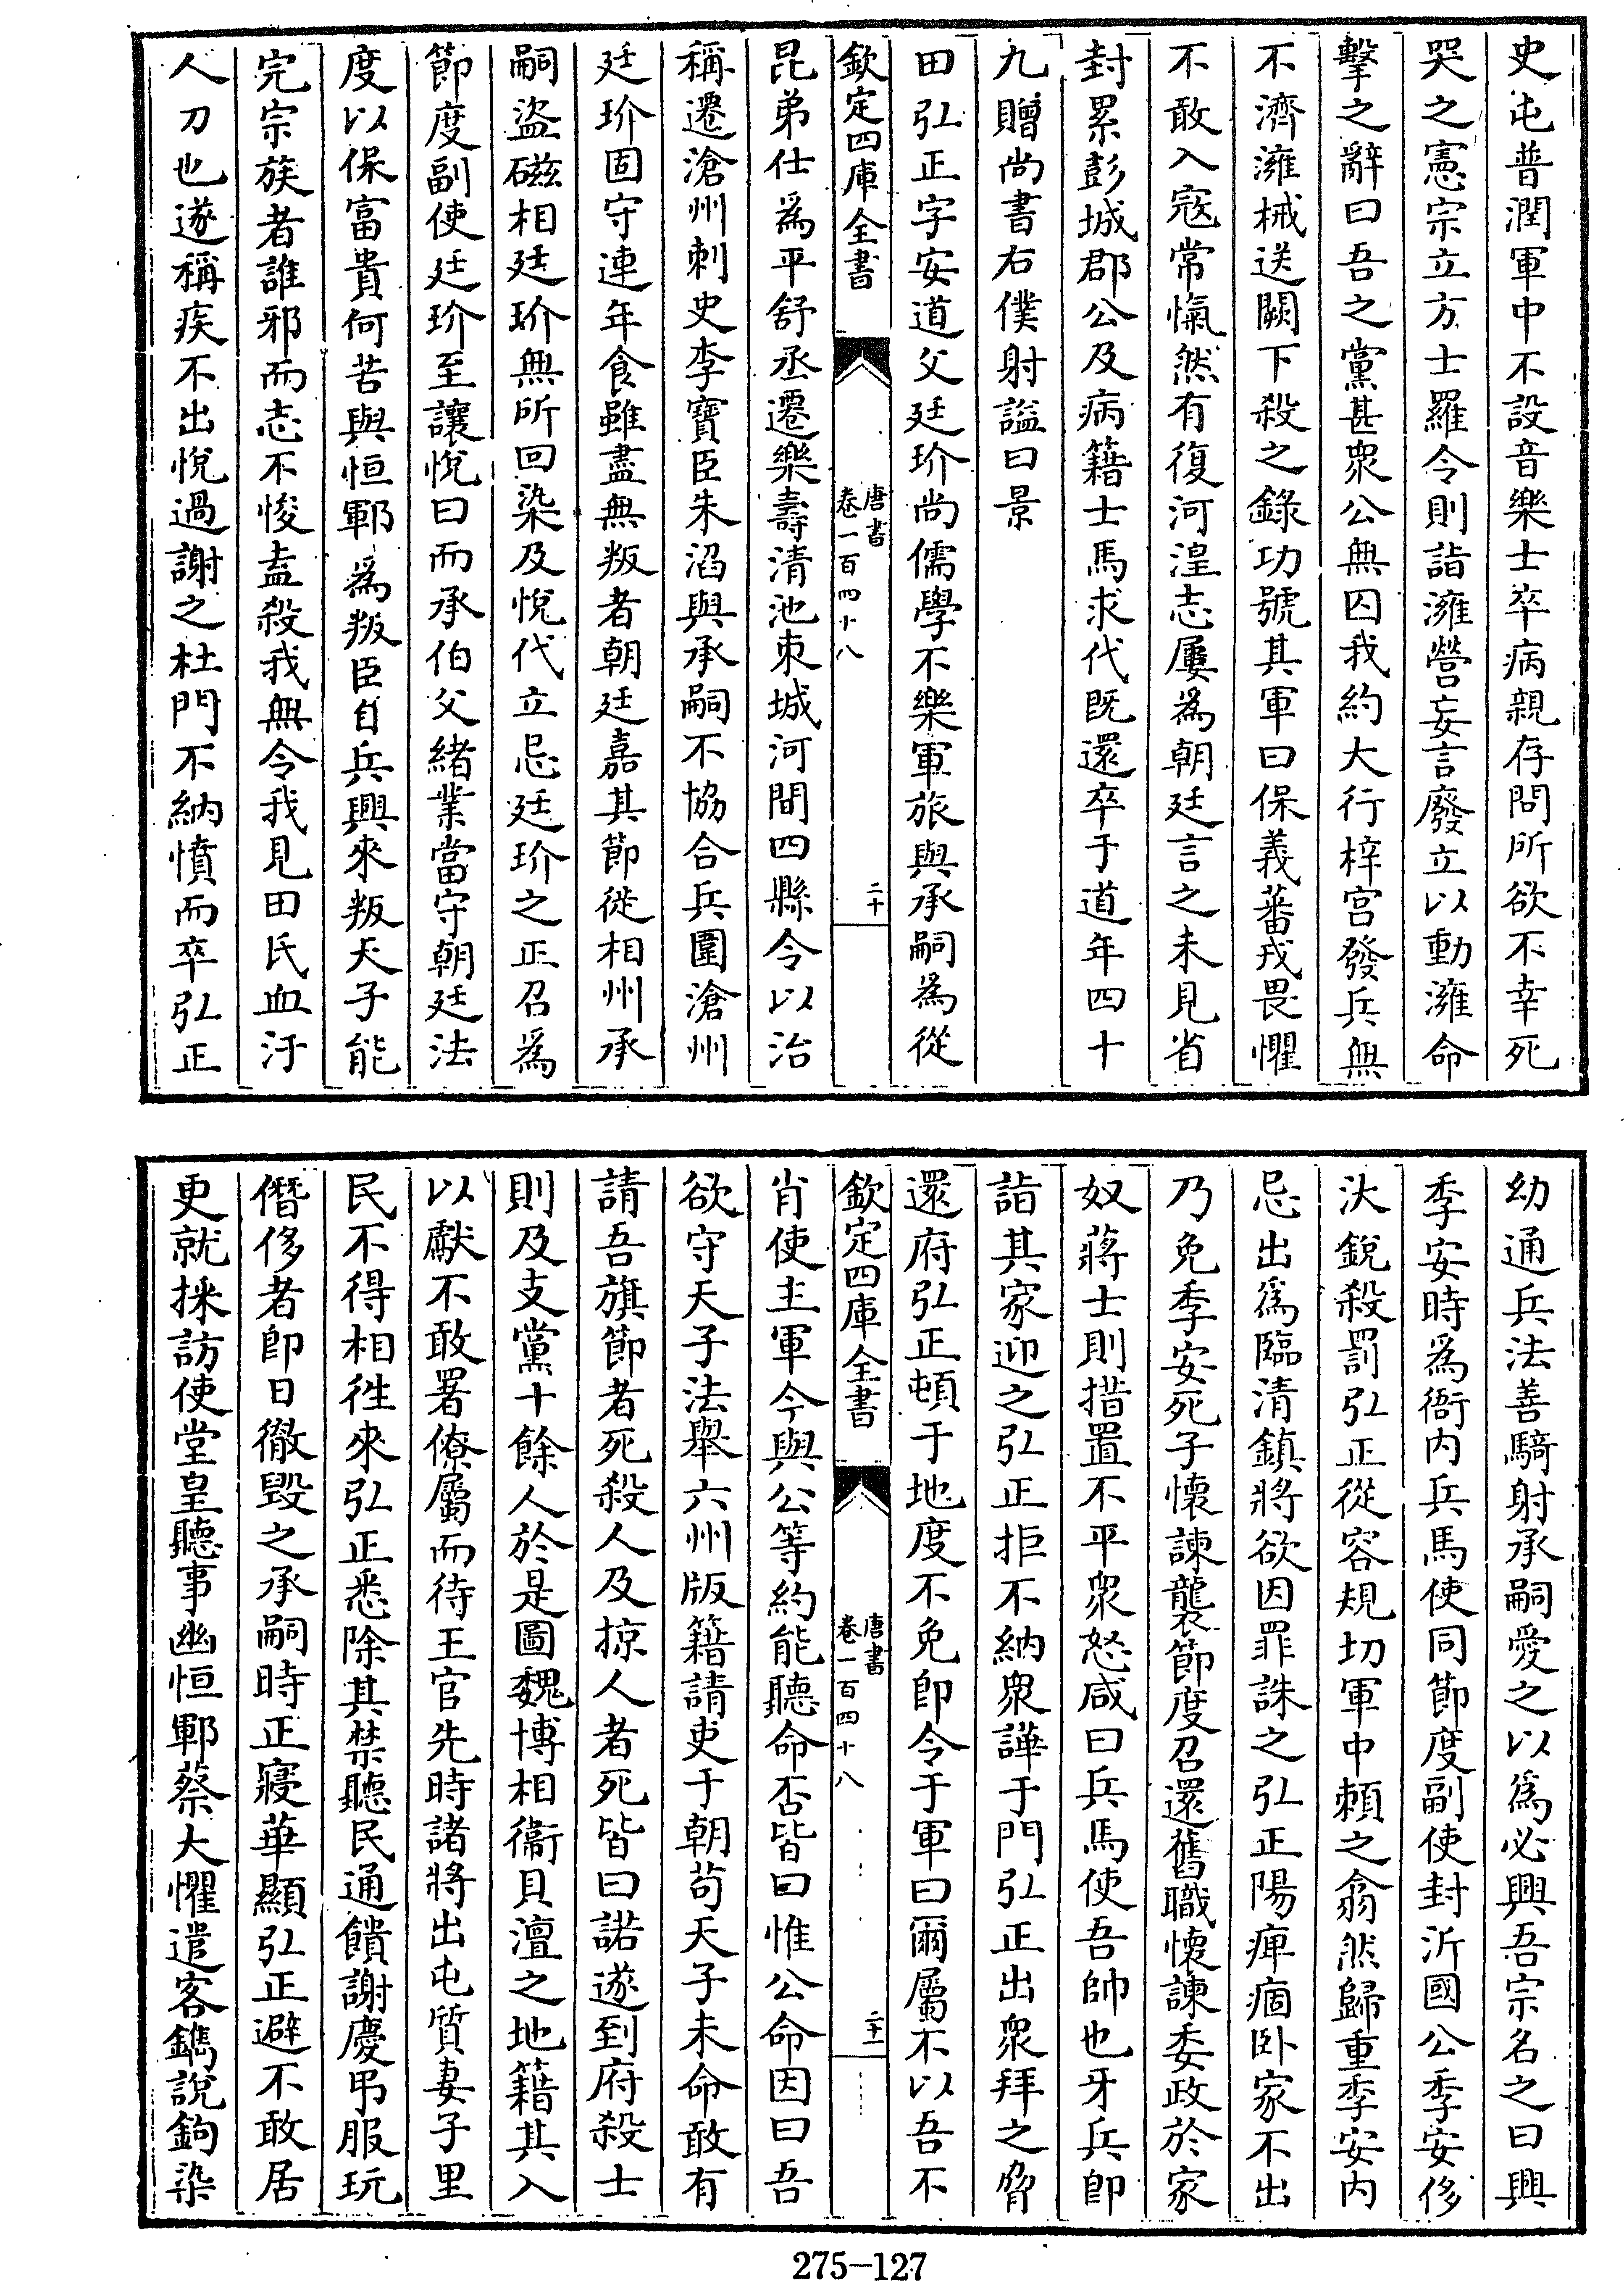 史屯普潤軍中不設音樂士卒病親存問所欲不幸死
哭之憲宗立方士羅令則詣澭營妄言廢立以動澭命
擊之辭曰吾之黨甚衆公無囚我約大行梓宫發兵無
不濟澭械送闕下殺之錄功號其軍曰保義蕃戎畏懼
不敢入寇常愾然有復河湟志屢爲朝廷言之未見省
封累彭城郡公及病籍士馬求代既還卒于道年四十
九贈尚書右僕射諡曰景
田弘正字安道父廷玠尚儒學不樂軍旅與承嗣爲從
欽定四庫全書
唐書
卷一百四十八
二十
昆弟仕爲平舒丞遷樂壽清池束城河間四縣令以治
稱遷滄州刺史李寶臣朱滔與承嗣不協合兵圍滄州
廷玠固守連年食雖盡無叛者朝廷嘉其節徙相州承
嗣盜磁相廷玠無所回染及悅代立忌廷玠之正召爲
節度副使廷玠至讓悅曰而承伯父緒業當守朝廷法
度以保富貴何苦與恒鄆爲叛臣自兵興來叛天子能
完宗族者誰邪而志不悛盍殺我無令我見田氏血汙
人刀也遂稱疾不出悅過謝之杜門不納憤而卒弘正
幼通兵法善騎射承嗣愛之以爲必興吾宗名之曰興
季安時爲衙内兵馬使同節度副使封沂國公季安侈
汏銳殺罰弘正從容規切軍中賴之翕然歸重季安内
忌出爲臨清鎮將欲因罪誅之弘正陽痺痼卧家不出
乃免季安死子懷諫襲節度召還舊職懷諫委政於家
奴蔣士則措置不平衆怒咸曰兵馬使吾帥也牙兵即
詣其家迎之弘正拒不納衆譁于門弘正出衆拜之脅
還府弘正頓于地度不免即令于軍曰爾屬不以吾不
欽定四庫全書
唐書
卷一百四十八
二十一
肖使主軍今與公等約能聽命否皆曰惟公命因曰吾
欲守天子法舉六州版籍請吏于朝苟天子未命敢有
請吾旗節者死殺人及掠人者死皆曰諾遂到府殺士
則及支黨十餘人於是圖魏博相衞貝澶之地籍其入
以獻不敢署僚屬而待王官先時諸將出屯質妻子里
民不得相徃來弘正悉除其禁聽民通饋謝慶弔服玩
僭侈者即日徹毁之承嗣時正寢華顯弘正避不敢居
更就採訪使堂皇聽事幽恒鄆蔡大懼遣客鐫說鉤染
275-127